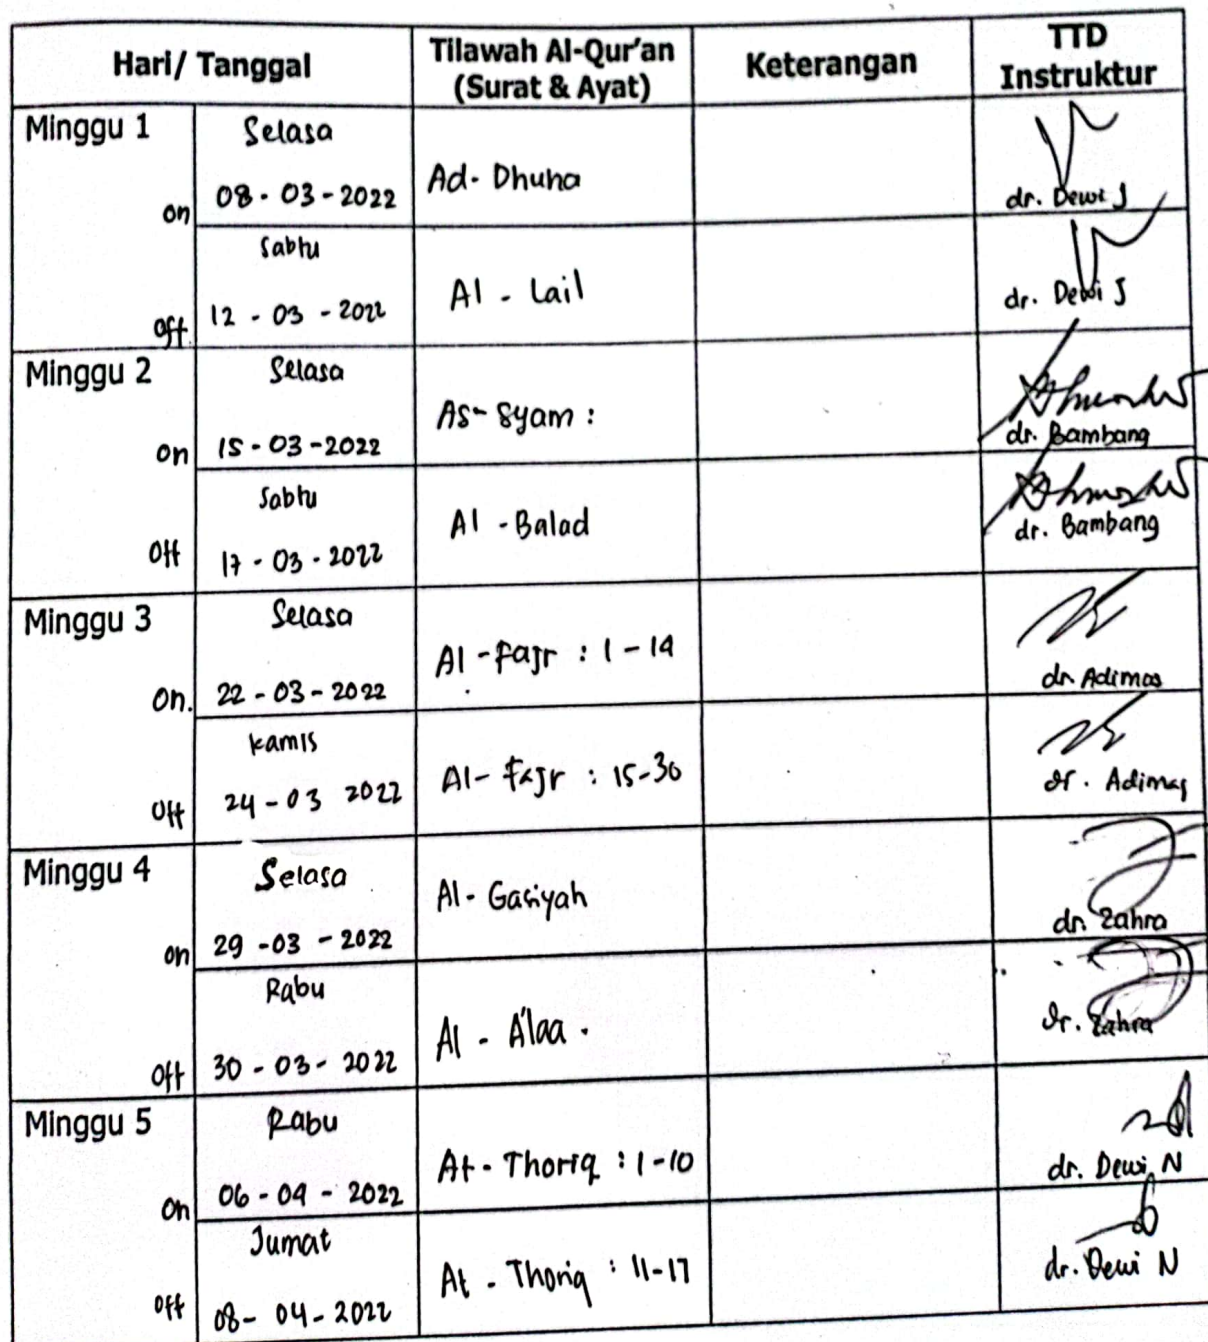 Hari/ Tanggal
Tilawah Al-Qur'an
(Surat & Ayat)
Keterangan
TTD
Instruktur
Minggu 1
on
Selasa
08 - 03 - 2022
Ad - Dhuha
dr. Dewi J
off
Sabtu
12 - 03 - 2022
Al - Lail
dr. Dewi J
Minggu 2
on
Selasa
15 - 03 - 2022
As - Syam :
dr. Bambang
Off
Sabtu
17 - 03 - 2022
Al - Balad
dr. Bambang
Minggu 3
on.
Selasa
22 - 03 - 2022
Al - Fajr : 1 - 14
dr. Adimas
Off
kamis
24 - 03 2022
Al - Fajr : 15-30
dr. Adimas
Minggu 4
on
Selasa
29 - 03 - 2022
Al - Gasiyah
dr. Zahra
Off
Rabu
30 - 03 - 2022
Al - A'laa .
dr. Zahra
Minggu 5
on
Rabu
06 - 04 - 2022
At - Thoriq : 1 - 10
dr. Dewi N
off
Jumat
08 - 04 - 2022
At - Thoriq : 11-17
dr. Dewi N